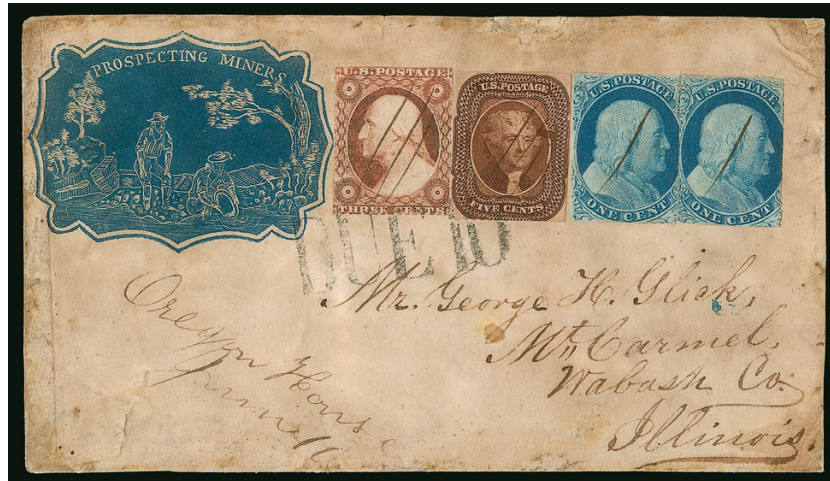 PROSPECTING MINERS
U.S. POSTAGE
THREE CENTS
U.S. POSTAGE
FIVE CENTS
U.S. POSTAGE
ONE CENT
U.S. POSTAGE
ONE CENT
DUE 10
Mr. George H. Glick,
Mt. Carmel,
Wabash Co.
Illinois.
Oregon House
June